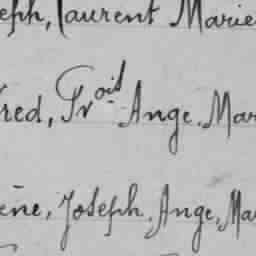 eph, Laurent Marie
red, Frçois Ange. Mar
ène, Joseph, Ange, Ma